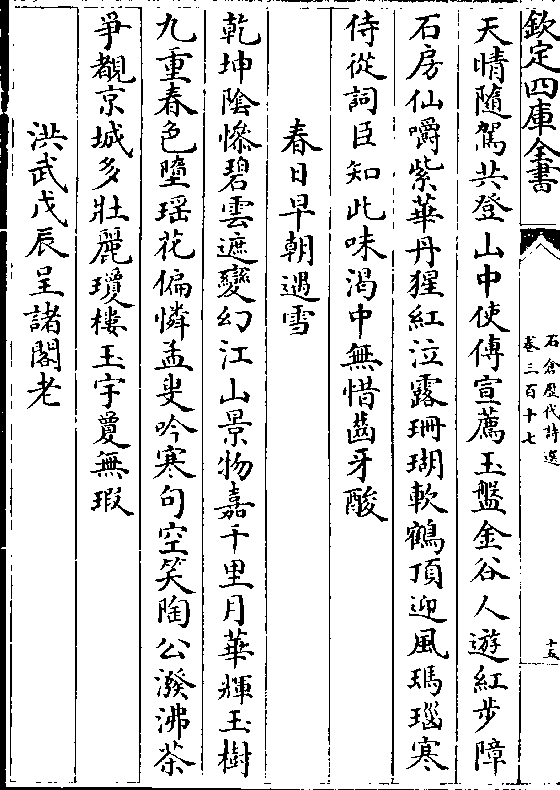 欽定四庫全書
石倉歷代詩選
卷三百十七
十五
天情隨駕共登山中使傳宣薦玉盤金谷人遊紅步障
石房仙嚼紫華丹猩紅泣露珊瑚軟鶴頂迎風瑪瑙寒
侍從詞臣知此味渴中無惜齒牙酸
春日早朝遇雪
乾坤陰慘碧雲遮變幻江山景物嘉千里月華輝玉樹
九重春色墮瑤花偏憐孟叟吟寒句空笑陶公潑沸茶
爭覩京城多壯麗瓊樓玉宇敻無瑕
洪武戊辰呈諸閣老